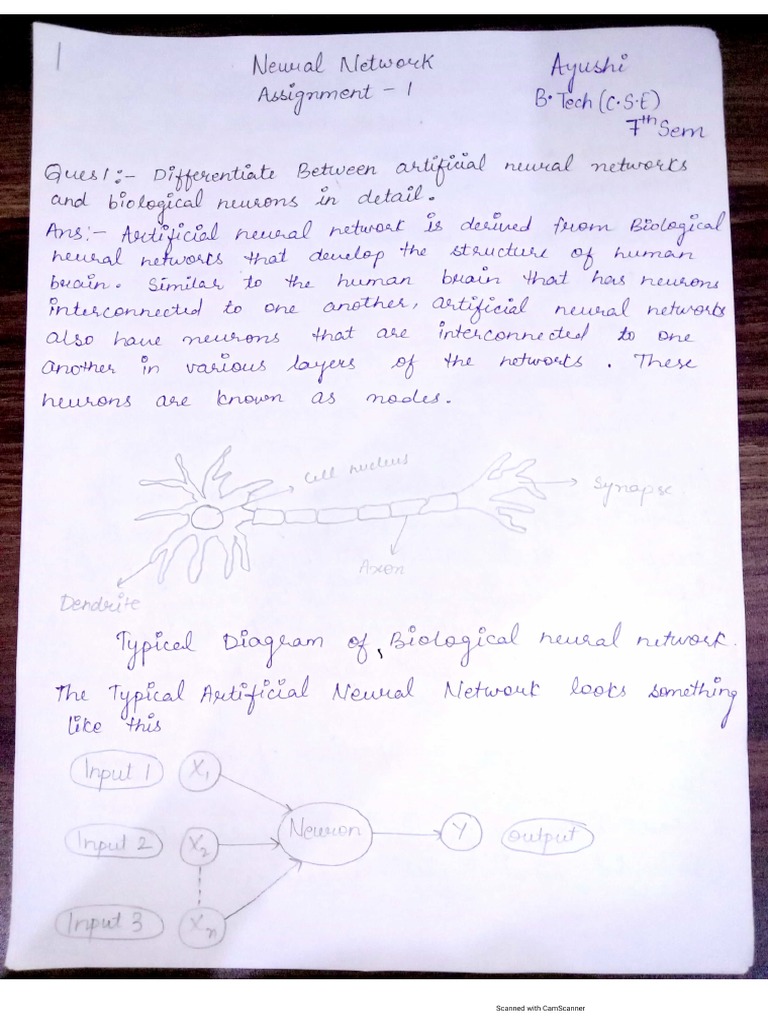 1
Neural Network
Assignment - 1
Ayushi
B.Tech (C.S.E)
7th Sem
Ques1:- Differentiate Between artificial neural networks
and biological neurons in detail.
Ans:- Artificial neural network is derived from Biological
neural networks that develop the structure of human
brain. Similar to the human brain that has neurons
interconnected to one another, artificial neural networks
also have neurons that are interconnected to one
another in various layers of the networks. These
neurons are known as nodes.
Cell nucleus
Synapse
Axon
Dendrite
Typical Diagram of Biological neural network.
The Typical Artificial Neural Network looks something
like this
Input 1 X1
Input 2 X2 Neuron Y output
Input 3 Xn
Scanned with CamScanner